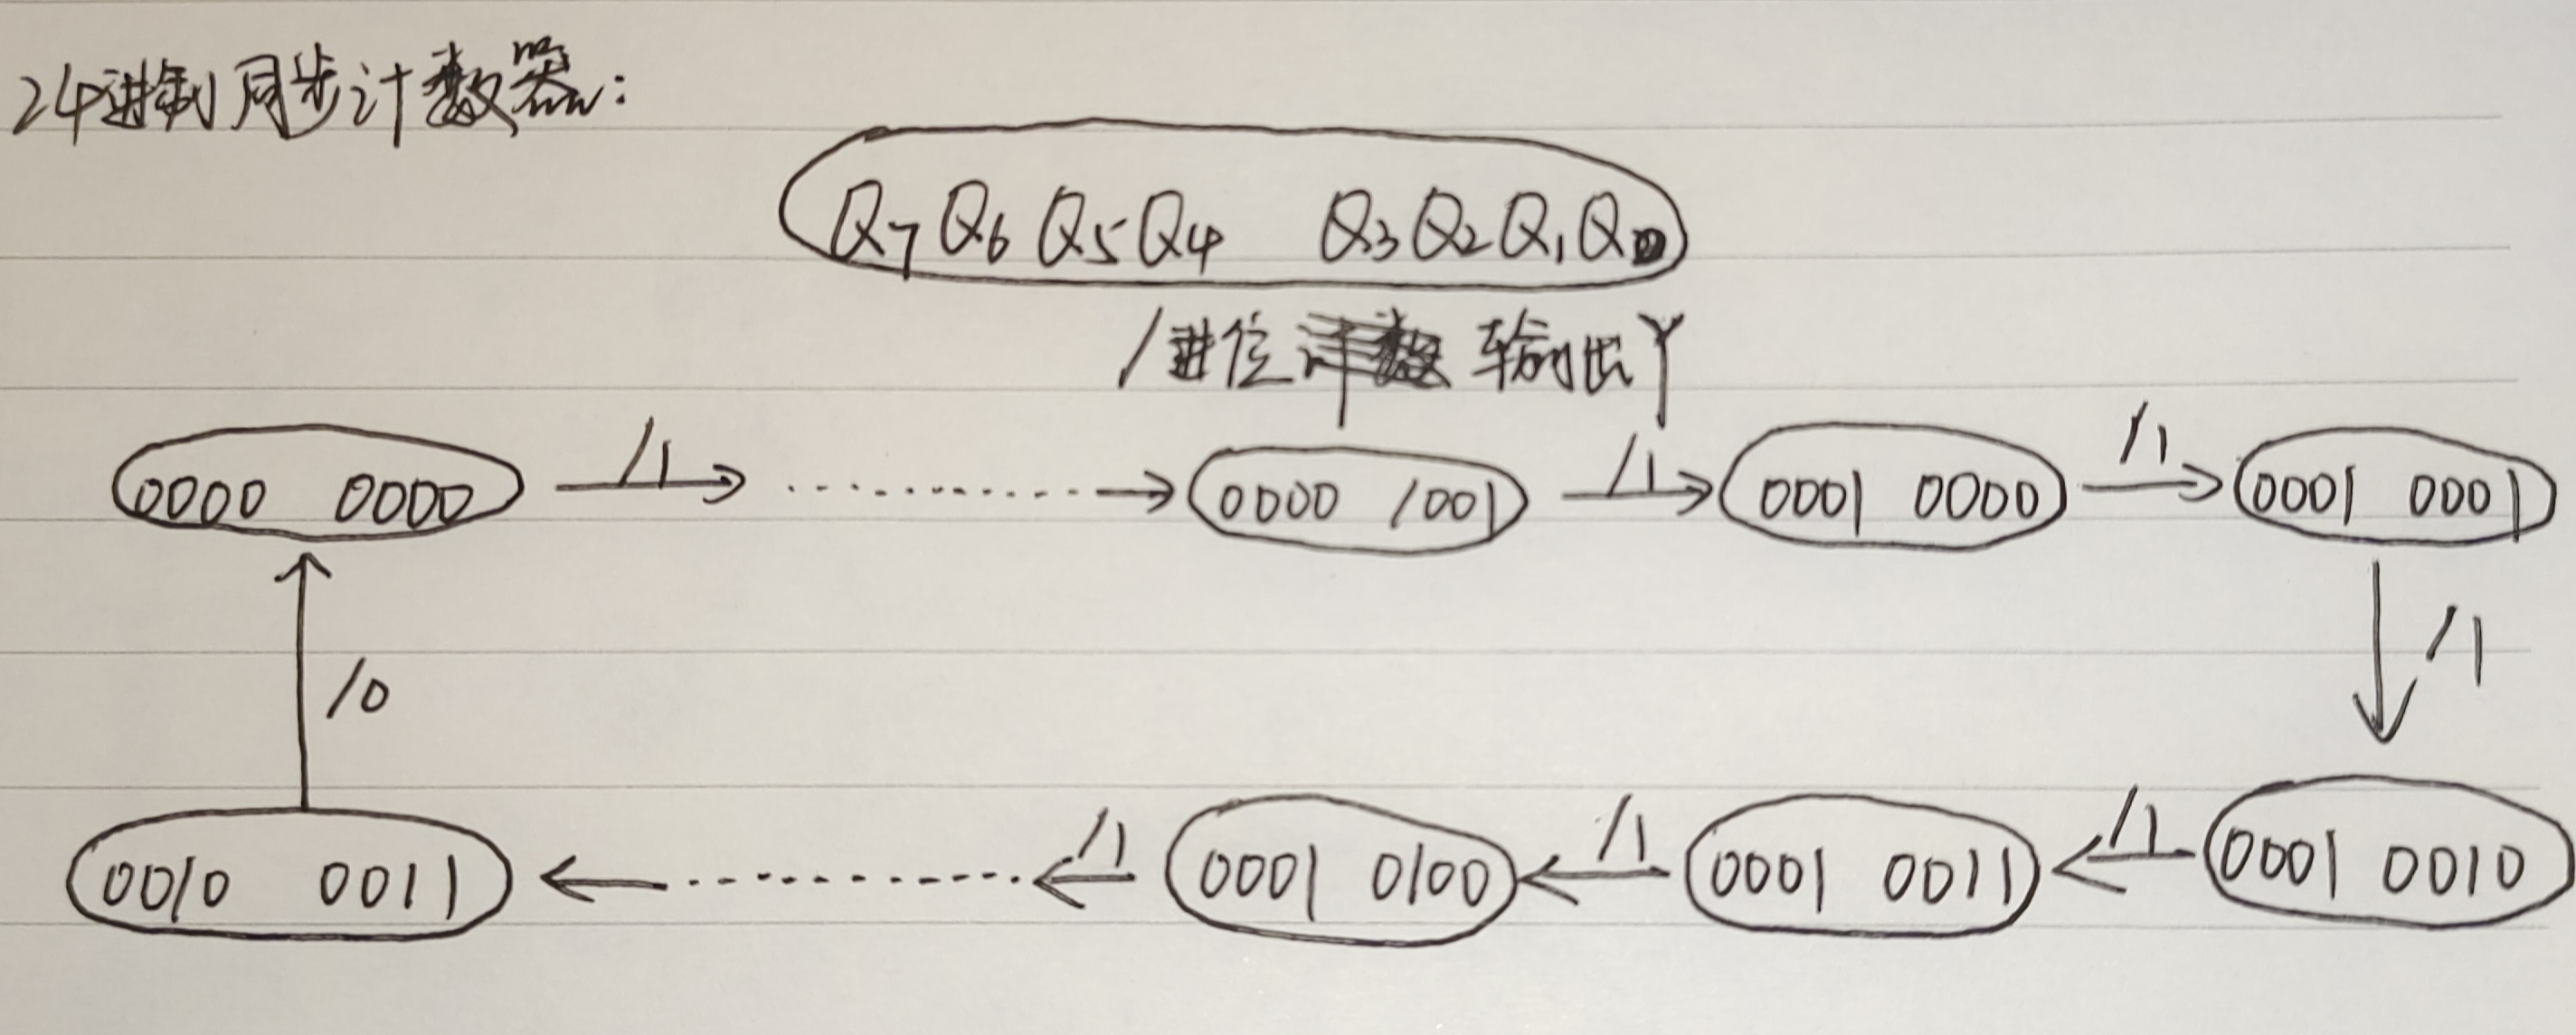 24进制同步计数器:
Q7 Q6 Q5 Q4 Q3 Q2 Q1 Q0
/进位 输出Y
0000 0000 /1 0000 1001 /1 0001 0000 /1 0001 0001
/0 /1
0010 0011 /1 0001 0100 /1 0001 0011 /1 0001 0010